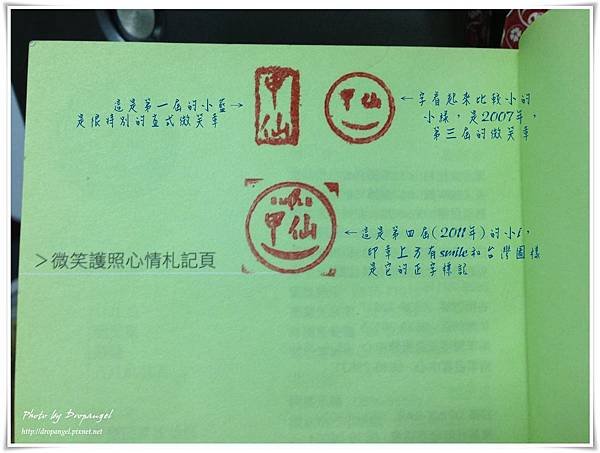 甲仙
甲仙
這是第一屆的小藍→
是很特別的直式微笑章
←字看起來比較小的
小綠，是2007年，
第三屆的微笑章
甲仙
←這是第四屆(2011年)的小i，
印章上方有smile和台灣圖樣
是它的正字標記
＞微笑護照心情札記頁
Photo by Dropangel
http://dropangel.pixnet.net